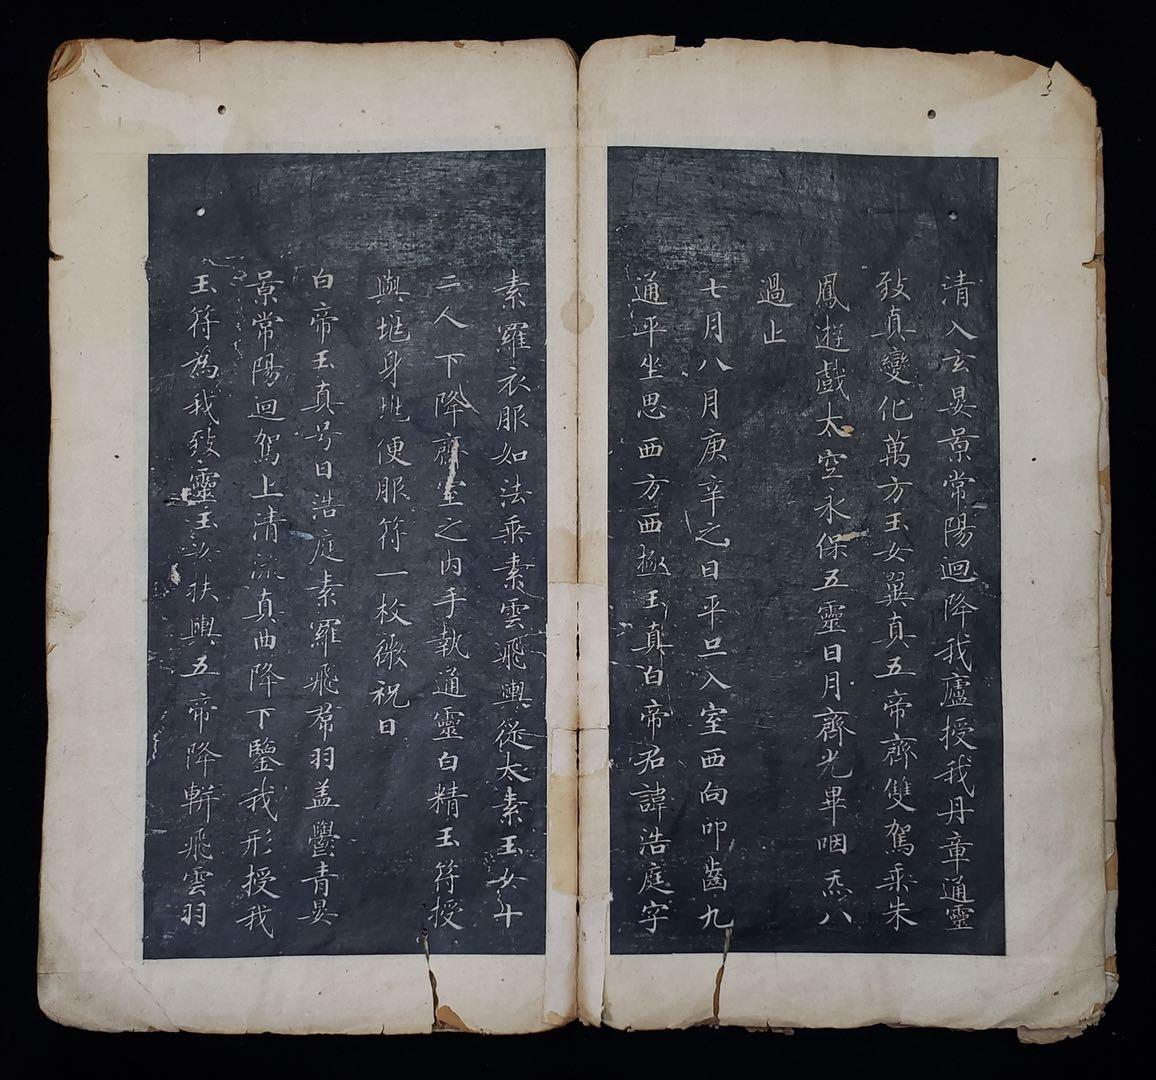 清入玄晏景常陽迴降我廬授我丹章通靈
致真變化萬方玉女翼真五帝齊雙駕乘朱
鳳遊戲太空永保五靈日月齊光畢咽炁八
過止
七月八月庚辛之日平旦入室西向叩齒九
通平坐思西方西極玉真白帝君諱浩庭字
素羅衣服如法乘素雲飛輿從太素玉女十
二人下降齋室之内手執通靈白精玉符授
與地身地便服符一枚微祝曰
白帝玉真号曰浩庭素羅飛羣羽盖欝青晏
景常陽迴駕上清流真曲降下鑒我形授我
玉符為我致靈玉女扶輿五帝降軿飛雲羽